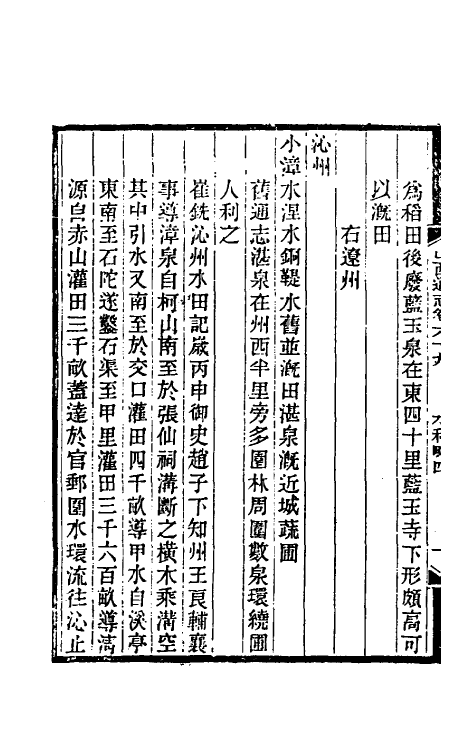 爲稻田後廢藍玉泉在東四十里藍玉寺下形頗高可
以漑田
右遼州
沁州
小漳水涅水銅鞮水舊並漑田湛泉漑近城蔬圃
舊通志湛泉在州西半里旁多園林周圍數泉環繞圃
人利之
崔銑沁州水田記歲丙申御史趙子下知州王良輔襄
事導漳泉自柯山南至於張仙祠溝斷之橫木乘溝空
其中引水又南至於交口灌田四千畝導甲水自溪亭
東南至石陀遂鑿石渠至甲里灌田三千六百畝導淸
源自赤山灌田三千畝蓋達於官郵圍水環流往沁止
山西通志卷六十九
水利略四
一